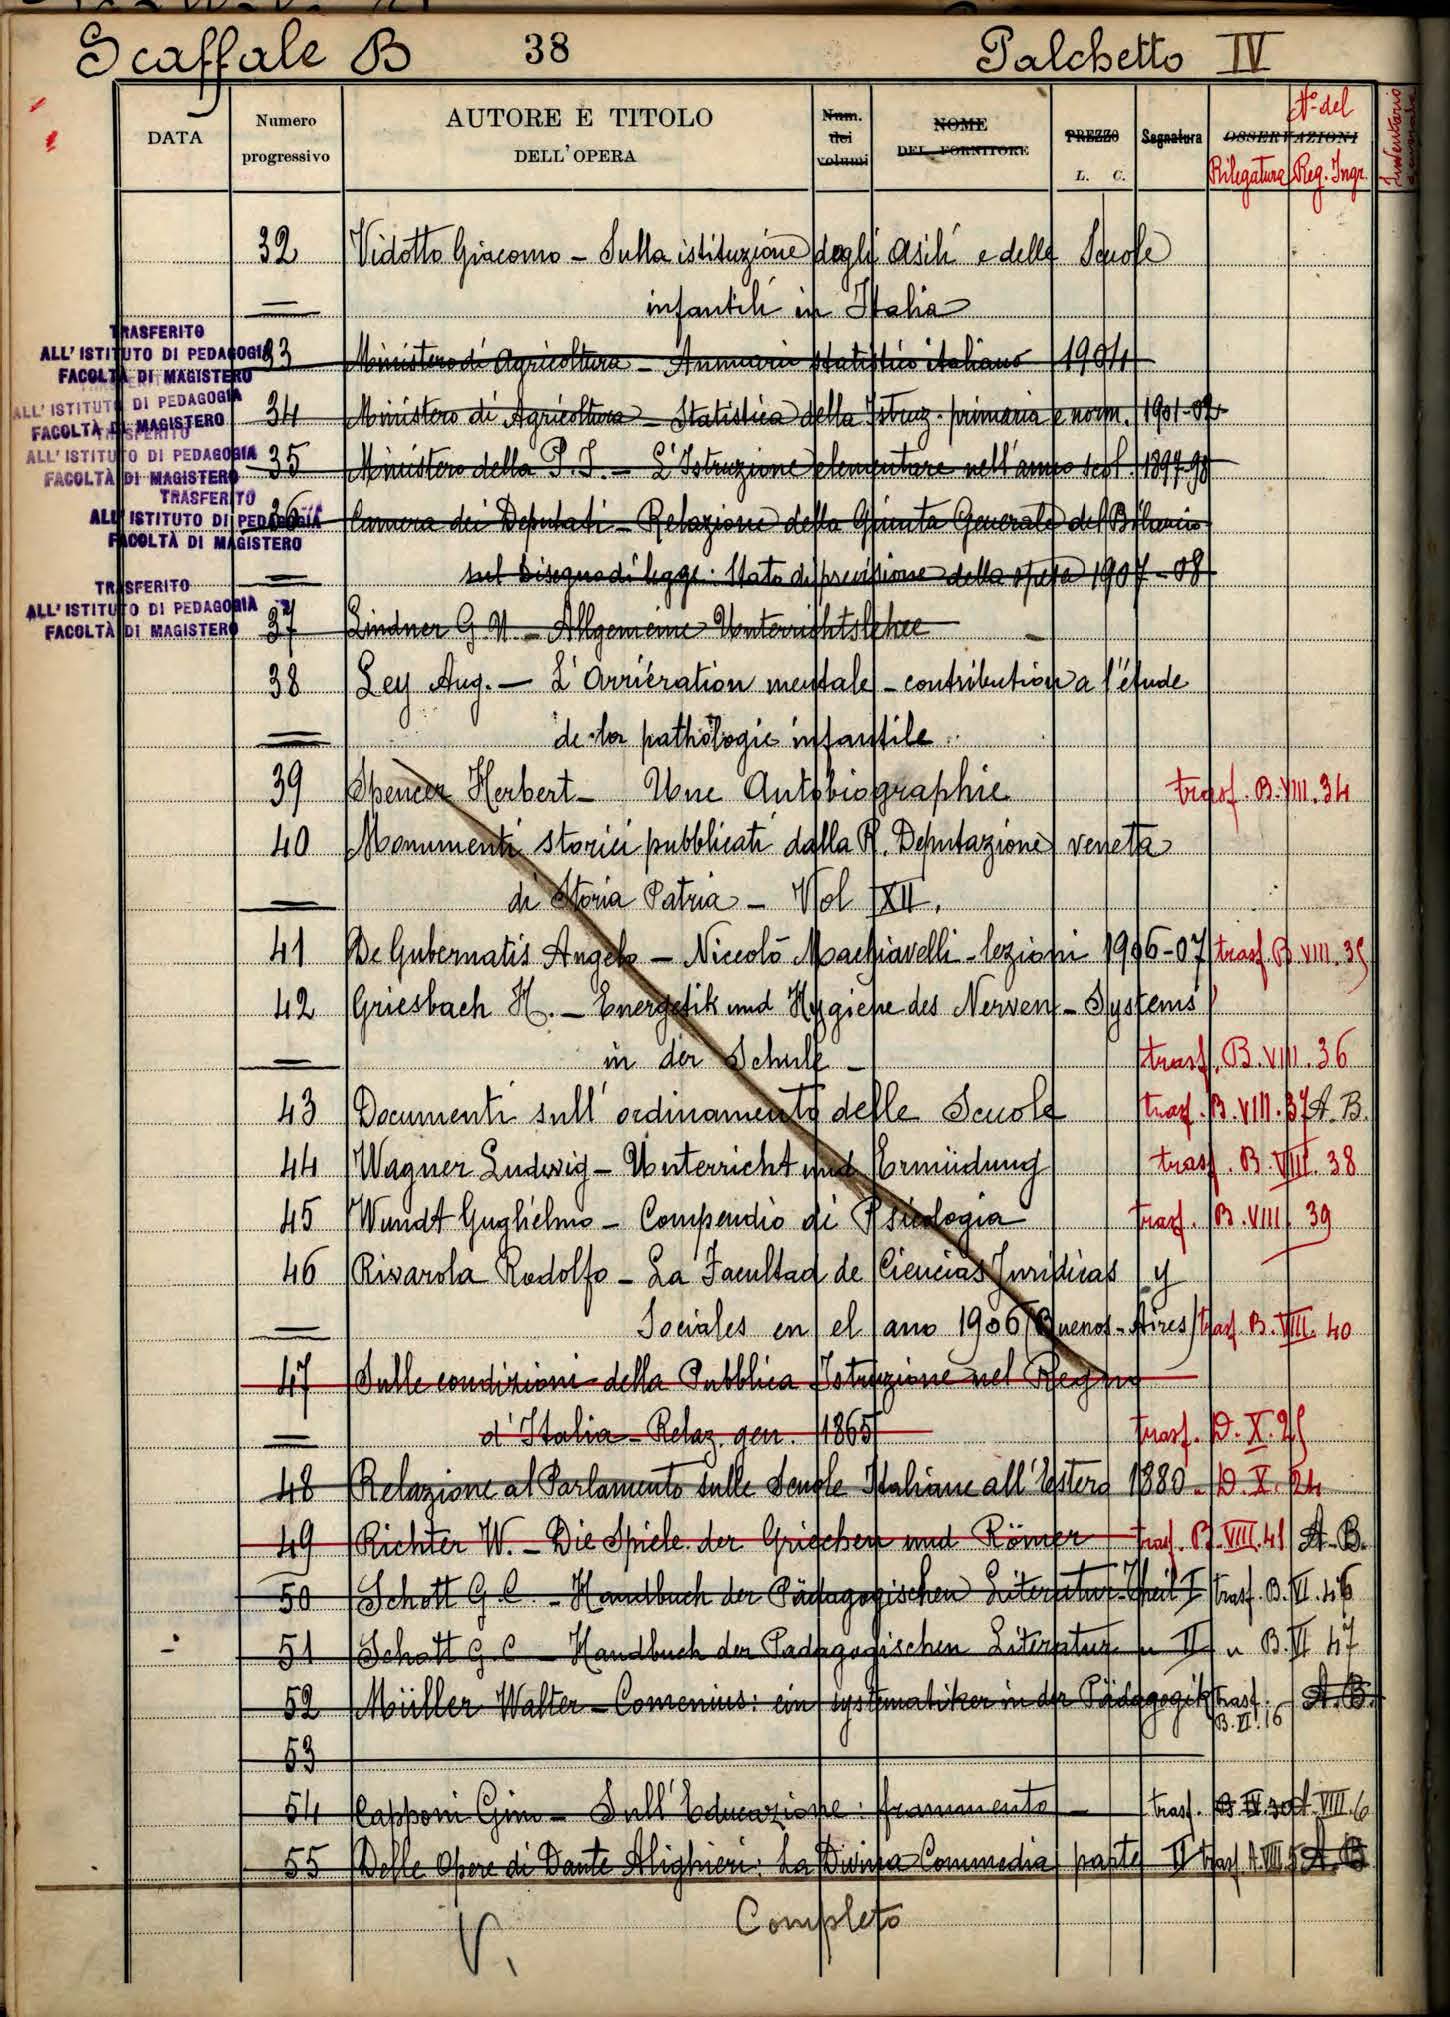 Scaffale B 38 Palchetto IV
DATA Numero progressivo AUTORE E TITOLO DELL'OPERA Num. dei volumi NOME DEL FORNITORE PREZZO L. C. Segnatura OSSERVAZIONI
Rilegatura N.° del Reg. Ingr.
Inventario
32 Vidotto Giacomo – Sulla istituzione degli asili e delle Scuole
infantili in Italia
TRASFERITO
ALL'ISTITUTO DI PEDAGOGIA
FACOLTÀ DI MAGISTERO
33 Ministero di Agricoltura – Annuario statistico italiano 1904
ALL'ISTITUTO DI PEDAGOGIA
FACOLTÀ DI MAGISTERO
34 Ministero di Agricoltura – Statistica della Istruz. primaria e norm. 1901-02
TRASFERITO
ALL'ISTITUTO DI PEDAGOGIA
FACOLTÀ DI MAGISTERO
35 Ministero della P. I. – L'Istruzione elementare nell'anno scol. 1897-98
TRASFERITO
ALL'ISTITUTO DI PEDAGOGIA
FACOLTÀ DI MAGISTERO
36 Camera dei Deputati – Relazione della Giunta Generale del Bilancio
sul disegno di legge: Stato di previsione della spesa 1907-08
TRASFERITO
ALL'ISTITUTO DI PEDAGOGIA
FACOLTÀ DI MAGISTERO
37 Lindner G. A. – Allgemeine Unterrichtslehre
38 Ley Aug. – L'Arriération mentale – contribution a l'étude
de la pathologie infantile
39 Spencer Herbert – Une Autobiographie trasf. B. VIII. 34
40 Monumenti storici pubblicati dalla R. Deputazione veneta
di Storia Patria – Vol XII.
41 De Gubernatis Angelo – Niccolò Machiavelli – lezioni 1906-07 trasf. B VIII. 35
42 Griesbach H. – Energetik und Hygiene des Nerven – Systems
in der Schule – trasf. B. VIII. 36
43 Documenti sull'ordinamento delle Scuole trasf. B. VIII. 37 A. B.
44 Wagner Ludwig – Unterricht und Ermüdung trasf. B. VIII. 38
45 Wundt Guglielmo – Compendio di Psicologia trasf. B. VIII. 39
46 Rivarola Rodolfo – La Facultad de Ciencias Juridicas y
Sociales en el ano 1906 (Buenos-Aires) trasf. B. VIII. 40
47 Sulle condizioni della Pubblica Istruzione nel Regno
d'Italia – Relaz. gen. 1865 trasf. D. X. 25
48 Relazione al Parlamento sulle Scuole Italiane all'Estero 1880 – D. X. 24
49 Richter W. – Die Spiele der Griechen und Römer trasf. B. VIII. 41 A. B.
50 Schott G. C. – Handbuch der Pädagogischen Literatur Theil I trasf. B. VI. 46
51 Schott G. C – Handbuch der Padagogischen Literatur " II " B. VI 47
52 Müller Walter – Comenius: ein systematiker in der Pädagogik trasf. B. VI. 16 A. B.
53
54 Capponi Gino – Sull'Educazione: frammento – trasf. B. IV. 30 A. VIII. 6
55 Delle Opere di Dante Alighieri: La Divina Commedia parte II trasf. A. VIII. 5 A. B
V. Completo